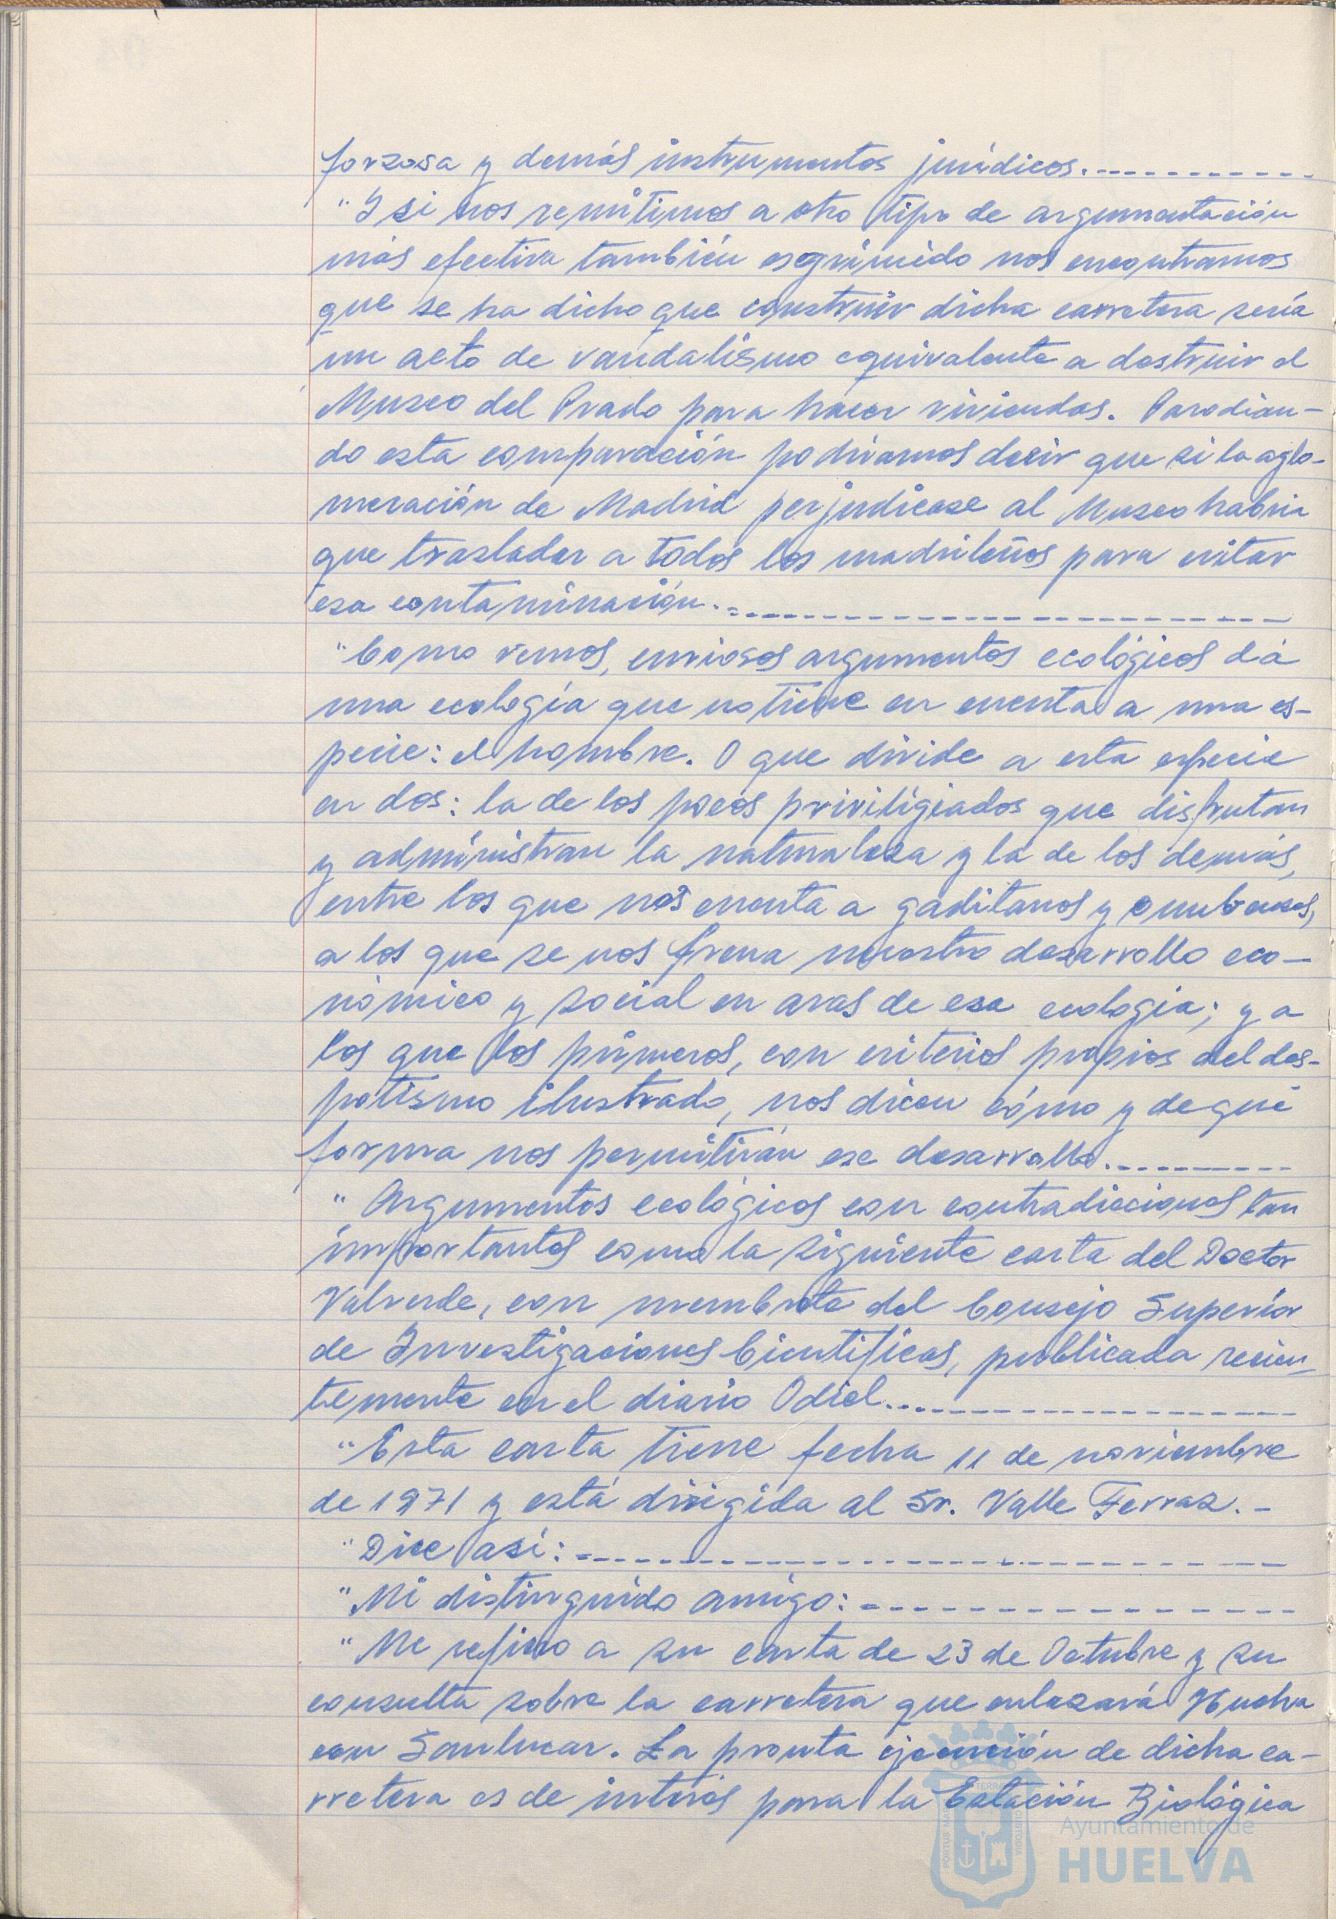 forzosa y demás instrumentos jurídicos.-----------
"Y si nos remitimos a otro tipo de argumentación
más efectiva también esgrimido nos encontramos
que se ha dicho que construir dicha carretera sería
un acto de vandalismo equivalente a destruir el
Museo del Prado para hacer viviendas. Parodian-
do esta comparación podríamos decir que si la aglo-
meración de Madrid perjudicase al Museo habría
que trasladar a todos los madrileños para evitar
esa contaminación.-----------------------
"Como vemos, curiosos argumentos ecológicos da
una ecología que no tiene en cuenta a una es-
pecie: el hombre. O que divide a esta especie
en dos: la de los pocos priviligiados que disfrutan
y administran la naturaleza y la de los demás,
entre los que nos cuenta a gaditanos y onubenses,
a los que se nos frena nuestro desarrollo eco-
nómico y social en aras de esa ecología; y a
los que los primeros, con criterios propios del des-
potismo ilustrado, nos dicen cómo y de qué
forma nos permitirán ese desarrollo.----------
"Argumentos ecológicos con contradicciones tan
importantes como la siguiente carta del Doctor
Valverde, con membrete del Consejo Superior
de Investigaciones Científicas, publicada recien-
temente en el diario Odiel.------------------
"Esta carta tiene fecha 11 de noviembre
de 1971 y está dirigida al Sr. Valle Ferraz.-
"Dice así:-----------------------------
"Mi distinguido amigo:------------------
"Me refiero a su carta de 23 de Octubre y su
consulta sobre la carretera que enlazará Huelva
con Sanlucar. La pronta ejecución de dicha ca-
rretera es de interés para la Estación Biológica
Ayuntamiento de
HUELVA